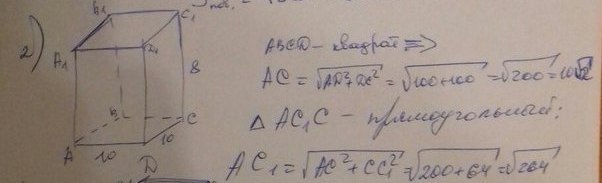 2)
B₁
C₁
A₁
D₁
8
B
C
A
10
10
D
ABCD – квадрат ⇒
AC = √AD²+DC² = √100+100 = √200 = 10√2
△ AC₁C – прямоугольный;
AC₁ = √AC²+CC₁² = √200+64 = √264